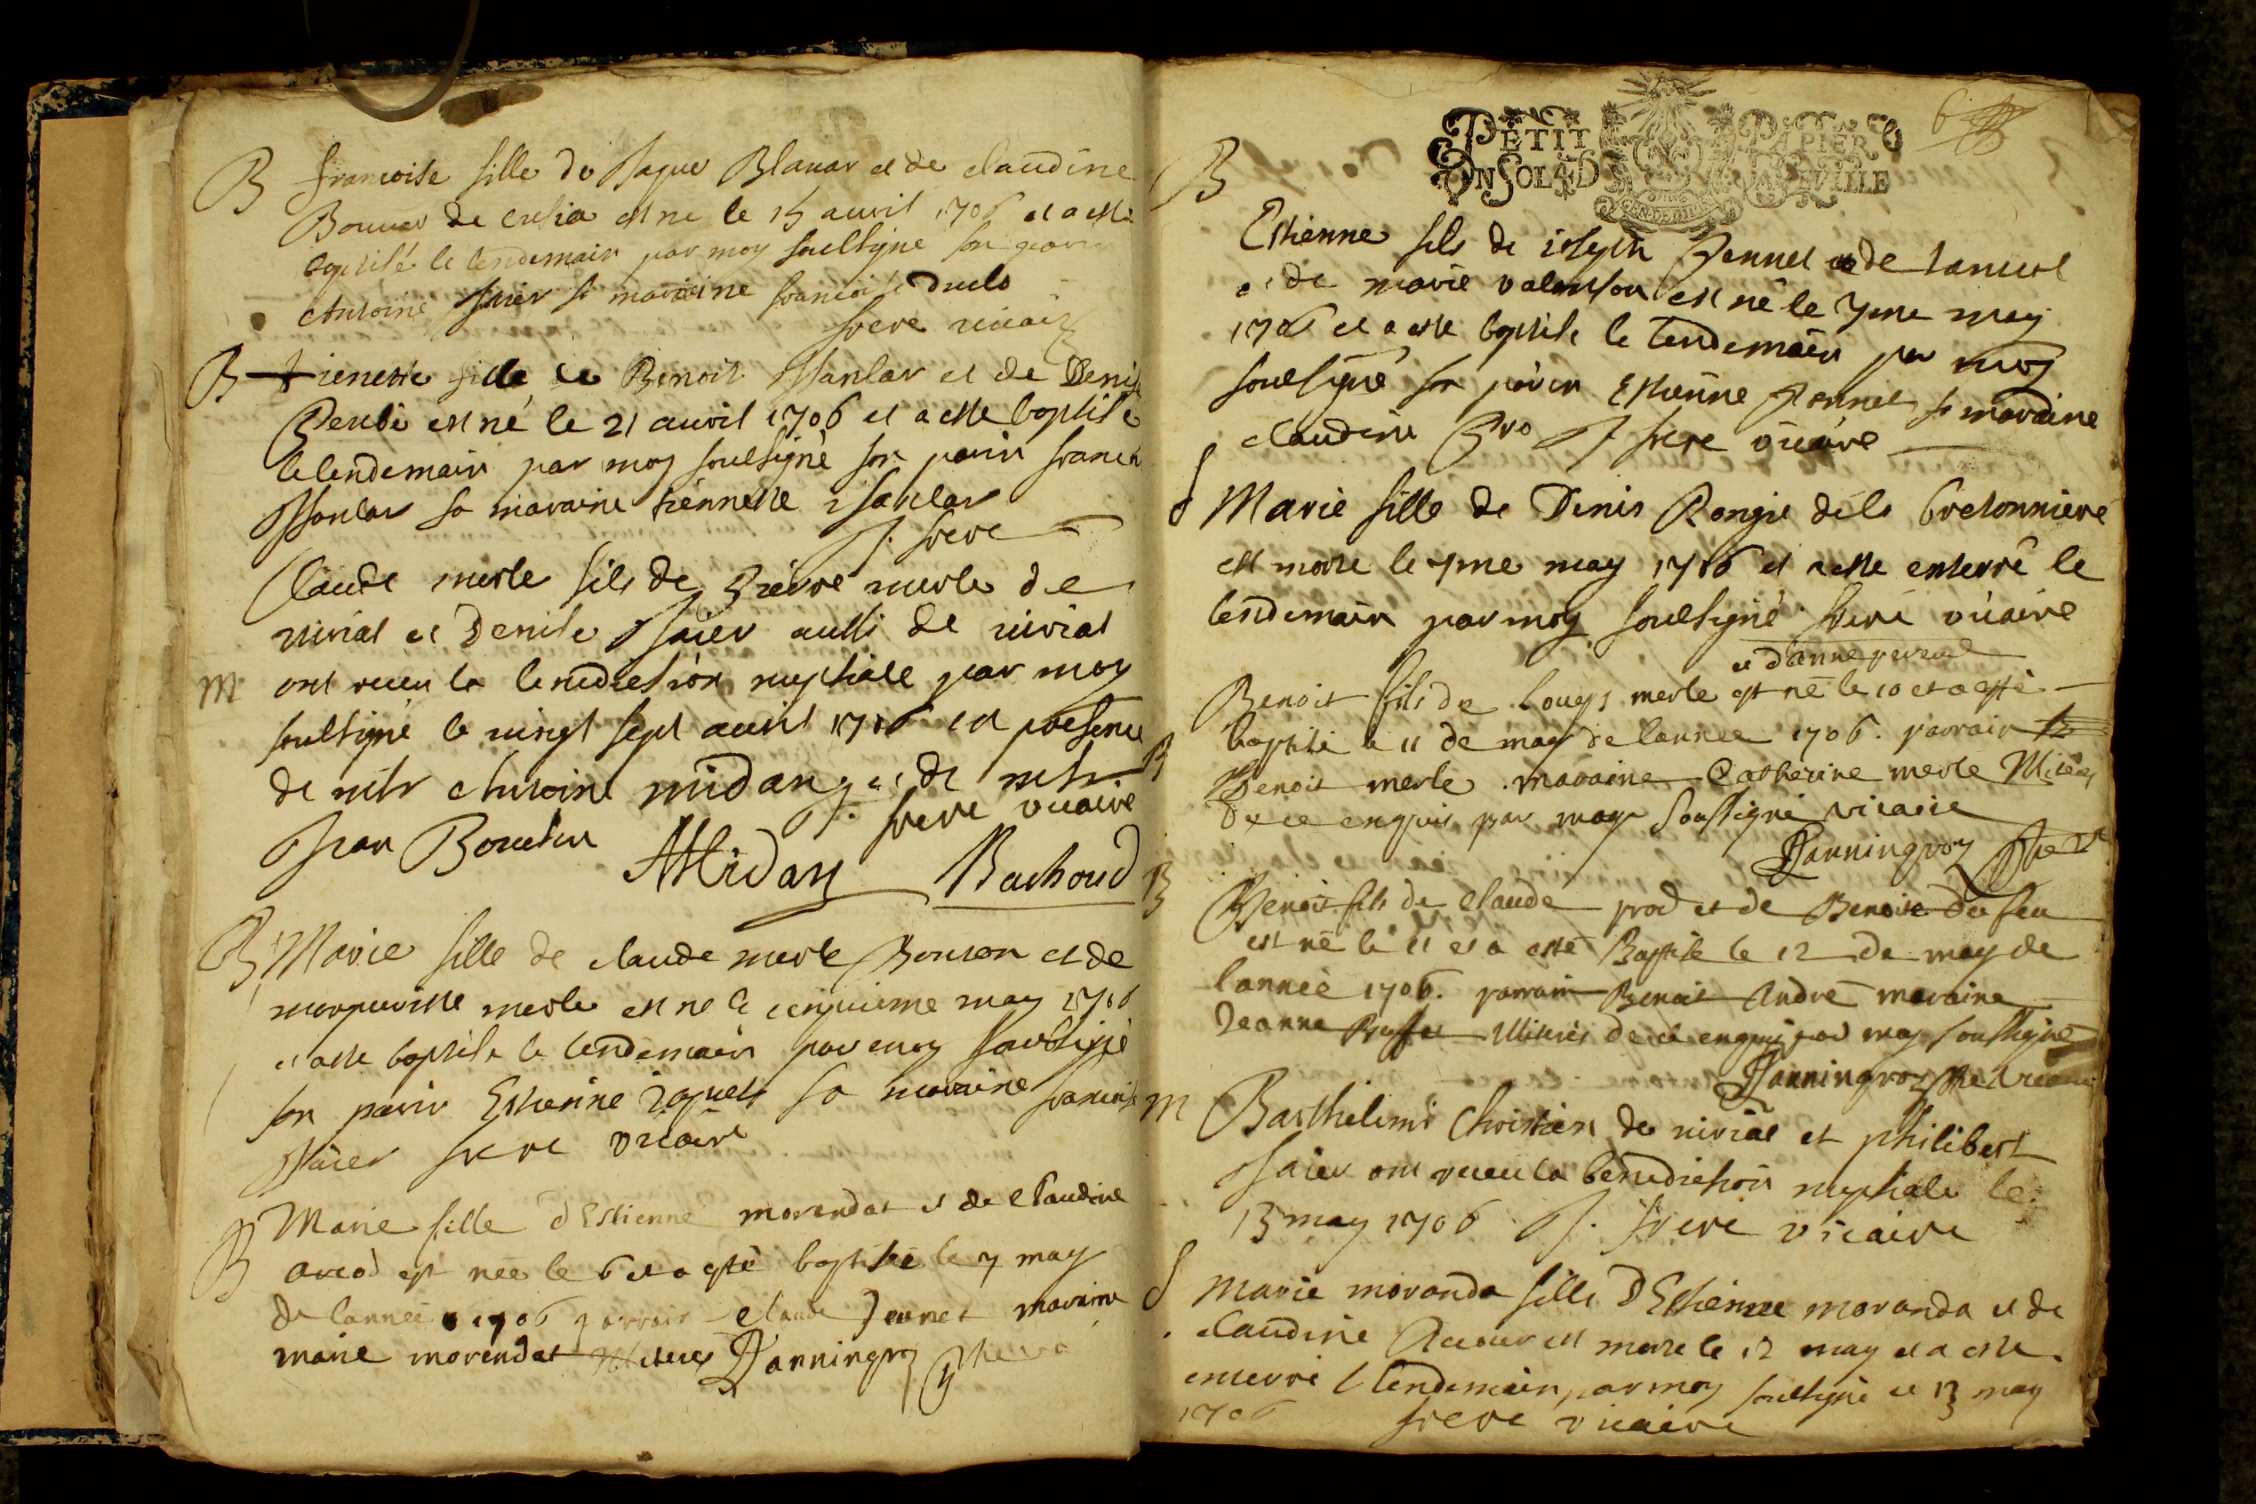 B francoise fille de Jaque Blanar et de claudine
Bouuer de cusia est ne le 15 auvril 1706 et a esté
baptisé le lendemain par moy soussigne son parin
Antoine Jsaier sa maraine francoise
frere vicaire
B tienette fille de Benoit Jsanlar et de Denise
est né le 21 auvril 1706 et a esté baptisé
le lendemain par moy soussigné son parin
Jsanlar sa maraine tiennette Jsanlar
J. frere
Claude merle fils de Pierre merle de
nivial et Denise Jsaier aussi de nivial
m ont receu la benediction nuptiale par moy
soussigné le vingt sept auvril 1706 en presence
de mtr Antoine midan et de mtr
J. frere vicaire
Jean
AMidan Bachoud
B Marie fille de claude merle Bouson et de
margueritte merle est ne le cinquieme may 1706
et a esté baptisé le lendemain par moy soussigné
son parin Estienne Jaquet sa maraine francoise
Jsaier frere vicaire
B Marie fille d'Estienne morandat et de claudine
arcod est née le 6 et a esté baptisée le 7 may
de lannée 1706 parrain claude Jennet maraine
marie morandat Danningroz
6
PETIT PAPIER
UN SOL 4 D LA FEUILLE
B
Estienne fils de Joseph Jennet de
et de marie est né le 7me may
1706 et a esté baptisé le lendemain par moy
soussigné son parin Estienne Jennet sa maraine
claudine J frere vicaire
S Marie fille de Denis Rongie de la bretonniere
est morte le 7me may 1706 et a esté enterré le
lendemain par moy soussigné frere vicaire
et d'anne
Benoit fils de Louys merle est né le 10 et a esté
B baptisé le 11 de may de lannee 1706. parrain
Benoit merle maraine Catherine merle
de ce enquis par moy soussigné vicaire
Danningroz
B Benoit fils de claude prod et de Benoite du feu
est né le 11 et a esté Baptisé le 12 de may de
lannée 1706. parrain Benoit André maraine
Jeanne de ce enquis par moy soussigné
Danningroz
m Barthelemi Christin de nivial et philibert
Jsaier ont receu la benediction nuptiale le
13 may 1706 J. frere vicaire
S Marie moranda fille D'Estienne moranda et de
claudine est morte le 12 may et a esté
enterré le lendemain par moy soussigné ce 13 may
1706 frere vicaire